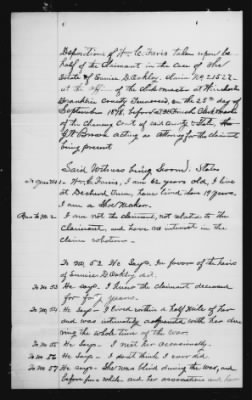 Deposition of Wm. C. Faris taken upon be
half of the Claimant in the case of the
Estate of Eunice D. Oakley. Claim No. 21527
at the office of the Clk & master at Winchester
Franklin County Tennessee, on the 25th day of
September 1878, before Clk & Master
of the Chancery Court of said County & State,
G.H. Brown acting as attorney for the claimant
being present
Said Witness being Sworn: States
To Gen. Int 1. Wm. C. Faris, I am 62 years old, I live
at Decherd Tenn, have lived here 19 years.
I am a Shoe Maker.
Ans to No. 2. I am not the claimant, not related to the
Claimant, and have no interest in the
claim whatever.
To No. 52 He Says. In favor of the heirs
of Eunice D. Oakley decd.
To No 53 He says. I knew the claimant deceased
for forty years.
To No 54 He Says - I lived within a half mile of her
and was intimately acquainted with her du-
ring the whole time of the war.
To No 55 He Says - I met her occasionally.
To No 56 He Says - I dont think I ever did
To No 57 He says - She was blind during the war, and
before for a while, and her associations and her